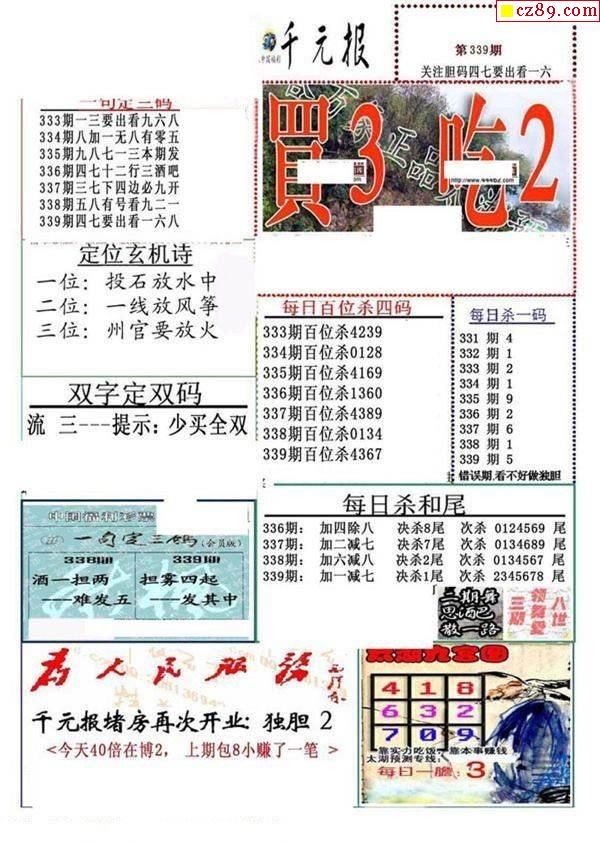 cz89.com
千元报
第339期
关注胆码四七要出看一六
買3 吃2
一句定三码
333期一三要出看九六八
334期八加一无八有零五
335期九八七一三本期发
336期四七十二行三酒吧
337期三七下四边必九开
338期五八有号看九二一
339期四七要出看一六八
定位玄机诗
一位: 投石放水中
二位: 一线放风筝
三位: 州官要放火
双字定双码
流 三---提示: 少买全双
每日百位杀四码
333期百位杀4239
334期百位杀0128
335期百位杀4169
336期百位杀1360
337期百位杀4389
338期百位杀0134
339期百位杀4367
每日杀一码
331 期 4
332 期 1
333 期 2
334 期 1
335 期 9
336 期 2
337 期 6
338 期 1
339 期 5
错误期,看不好做独胆
每日杀和尾
336期: 加四除八 决杀8尾 次杀 0124569 尾
337期: 加二减七 决杀7尾 次杀 0134689 尾
338期: 加六减八 决杀2尾 次杀 0134567 尾
339期: 加一减七 决杀1尾 次杀 2345678 尾
中国福利彩票
一句定三码(会员版)
338期 339期
酒一担两 担雾四起
---难发五 ---发其中
三期舞
思酒已
散一路
三期
领舞爱
八世
为人民服务
千元报堵房再次开业: 独胆 2
<今天40倍在博2, 上期包8小赚了一笔 >
九宫图
4 1 8
6 3 2
7 0 9
靠实力吃饭, 靠本事赚钱
太湖预测专线:
每日一胆: 3